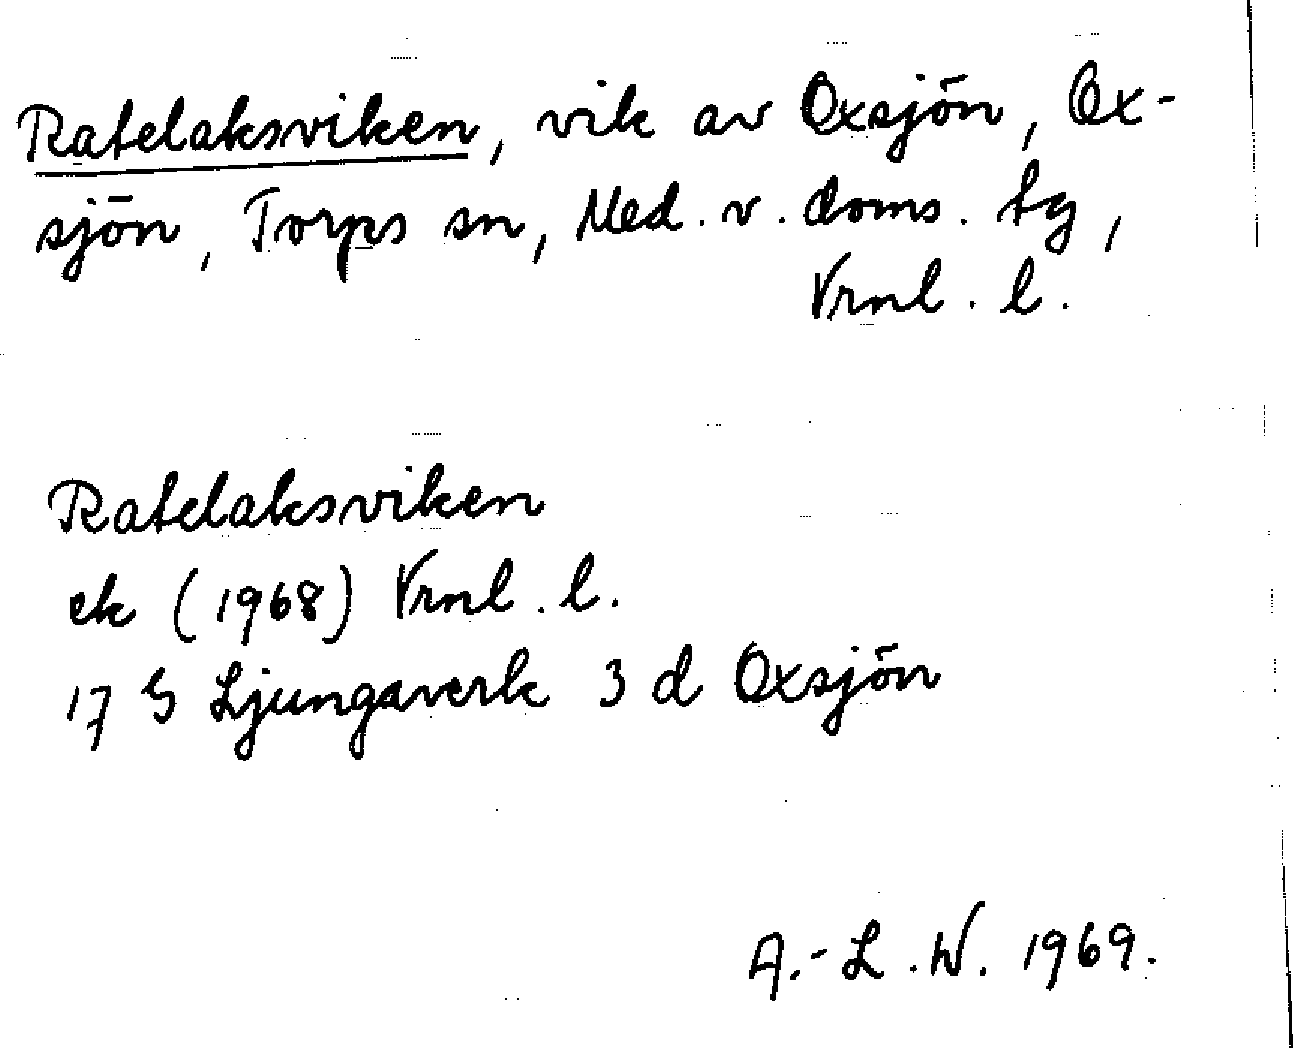 Ratelaksviken, vik av Oxsjön, Ox-
sjön, Torps sn, Med. v. doms. tg,
Vrnl. l.
Ratelaksviken
ek (1968) Vrnl. l.
17 G Ljungaverk 3 d Oxsjön
A.-L.W. 1969.